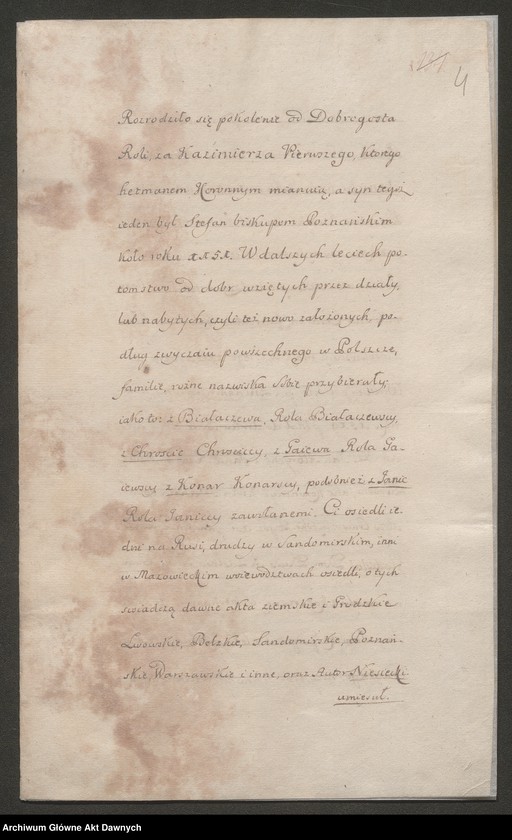 4
Rozrodziło się pokolenie od Dobrogosta
Roli, za Kazimierza Pierwszego, ktorego
hetmanem Koronnym mianuią, a syn tegoż
ieden był Stefań biskupom Poznańskim
koło roku 1151. W dalszych leciech po-
tomstwo od dobr wziętych przez działy,
lub nabytych, czyli też nowo założonych, po-
dług zwyczaiu powszechnego w Polszcze,
familie, rożne nazwiska sobie przybierały;
iako to: z Białaczewa, Rola Białaczewscy,
z Chroście Chrościccy, z Gaiewa Rola Ga-
iewscy z Konar Konarscy, podobnież z Janic
Rola Janiccy zawołanemi. Ci osiedli ie-
dni na Rusi, drudzy w Sandomirskim, inni
w Mazowieckim woiewodztwach osiedli, o tych
swiadczą dawne akta ziemskie i Grodzkie
Lwowskie, Belzkie, Sandomirskie, Poznań-
skie, Warszawskie i inne, oraz Autor Niesiecki
umieścił.
Archiwum Główne Akt Dawnych